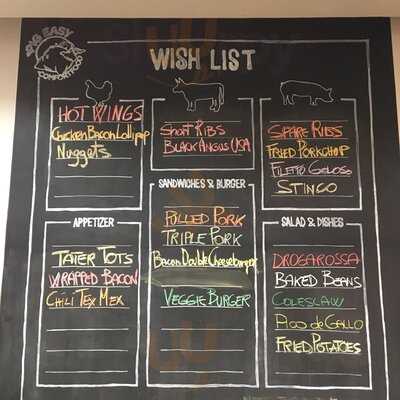 BIG EASY
COMFORT FOOD
WISH LIST
HOT WINGS
Chicken Bacon Lollipop
Nuggets
Short Ribs
Black Angus USA
Spare Ribs
Fried Porkchop
Filetto Goloso
Stinco
APPETIZER
Tater Tots
Wrapped Bacon
Chili Tex Mex
SANDWICHES & BURGER
Pulled Pork
Triple Pork
Bacon Double Cheeseburger
Veggie Burger
SALAD & DISHES
Drogarossa
Baked Beans
Coleslaw
Pico de Gallo
Fried Potatoes